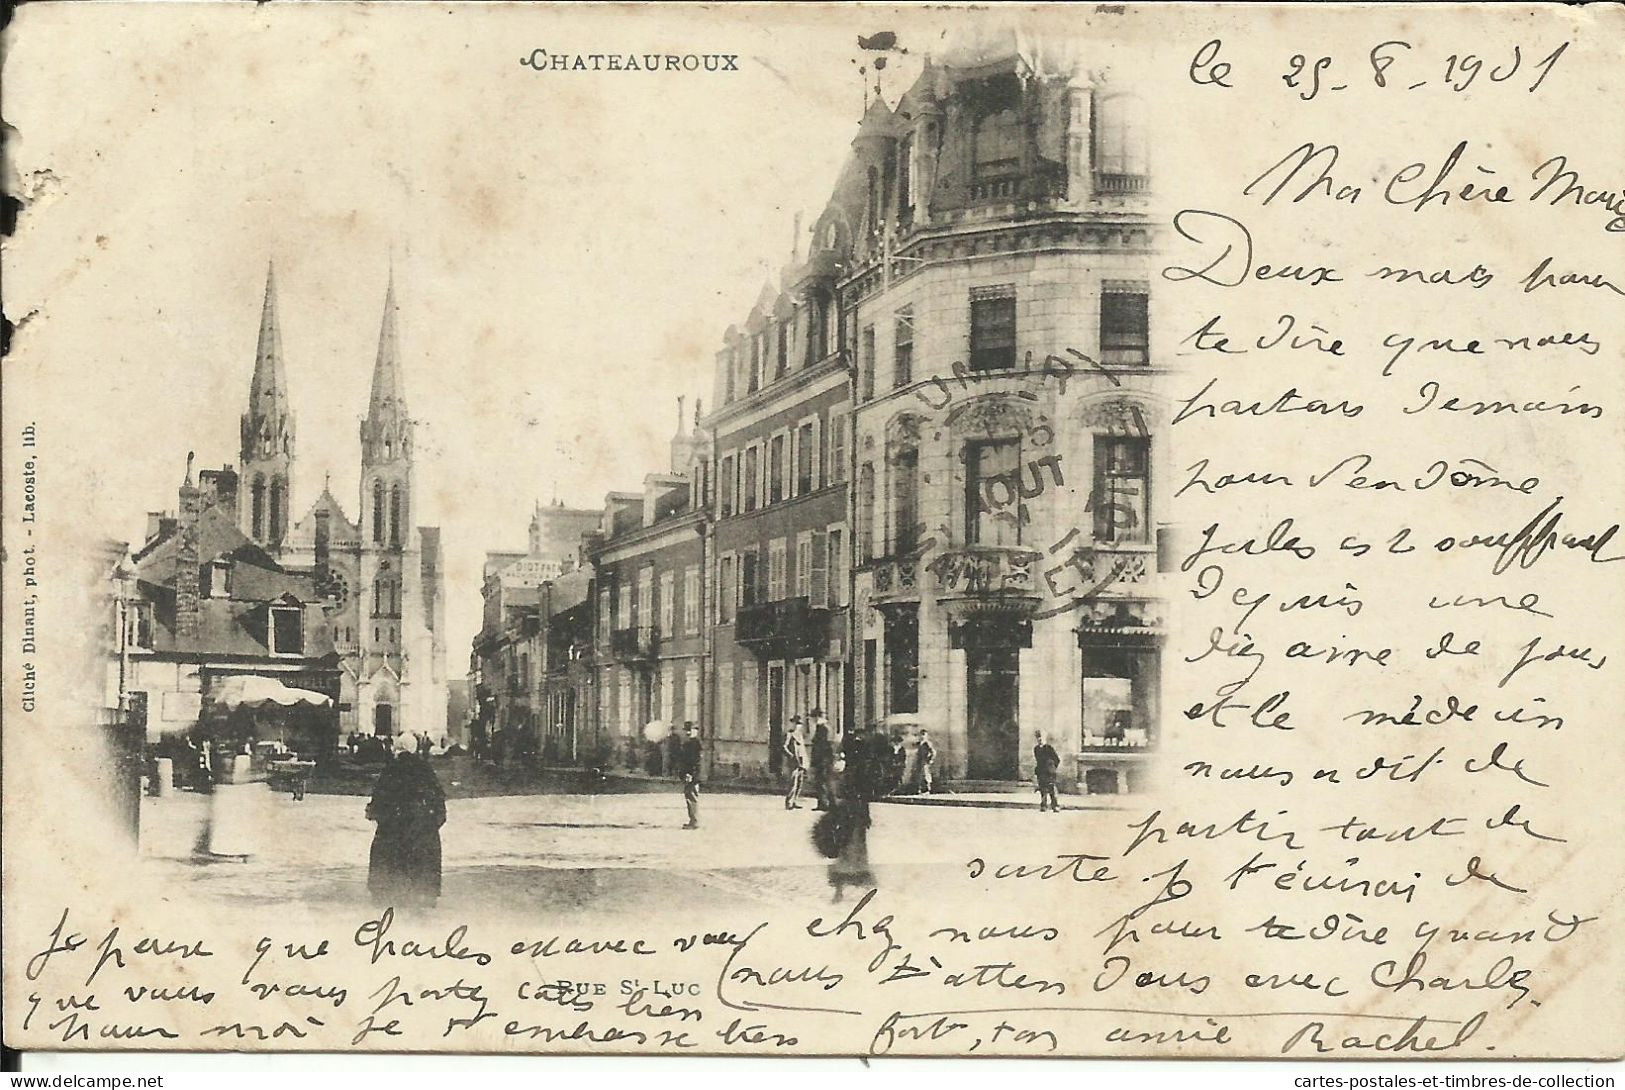 CHATEAUROUX
le 25-8-1901
Ma Chère Marie
Deux mots pour
te dire que nous
partons demain
pour Vendôme,
Jules est souffrant
depuis une
dizaine de jours
et le médecin
nous a dit de
partir tout de
suite. je t'écrirai de
chez nous pour te dire quand
nous t'attendons avec Charles.
Je pense que Charles est avec vous
que vous vous portez tous bien
pour moi je t'embrasse bien fort, ton amie Rachel.
RUE St LUC
Cliché Dinant, phot. - Lacoste, lib.
AOUT
cartes-postales-et-timbres-de-collection
www.delcampe.net